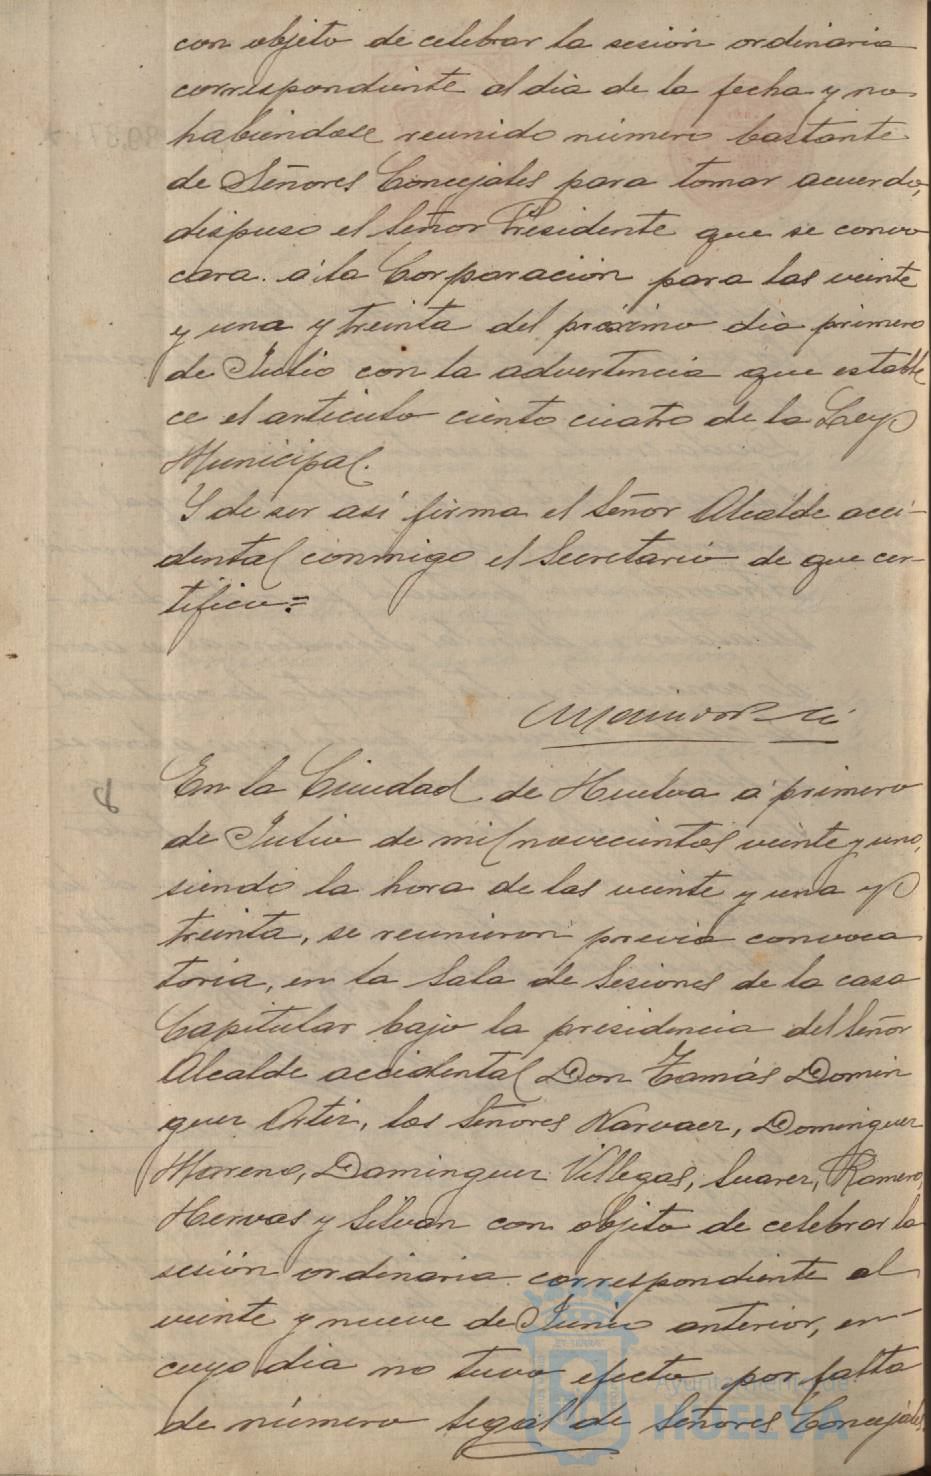 con objeto de celebrar la sesión ordinaria
correspondiente al dia de la fecha y no
habiendose reunido número bastante
de Señores Concejales para tomar acuerdo,
dispuso el Señor Presidente que se convo
cara á la Corporación para las veinte
y una y treinta del próximo dia primero
de Julio con la advertencia que estable
ce el articulo ciento cuatro de la Ley
Municipal.
Y de ser así firma el Señor Alcalde acci-
dental conmigo el Secretario de que cer-
tifico=
En la Ciudad de Huelva á primero
de Julio de mil novecientos veinte y uno,
siendo la hora de las veinte y una y
treinta, se reunieron previa convoca
toria, en la Sala de Sesiones de la casa
Capitular bajo la presidencia del Señor
Alcalde accidental Don Tomás Domin
guez Ortiz, los Señores Narvaez, Dominguez
Moreno, Dominguez Villegas, Suarez, Romero,
Hervas y Silvan con objeto de celebrar la
sesión ordinaria correspondiente al
veinte y nueve de Junio anterior, en
cuyo dia no tuvo efecto por falta
de número legal de Señores Concejales.
Ayuntamiento de
HUELVA